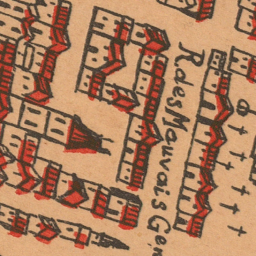 R des Mauvais Gen